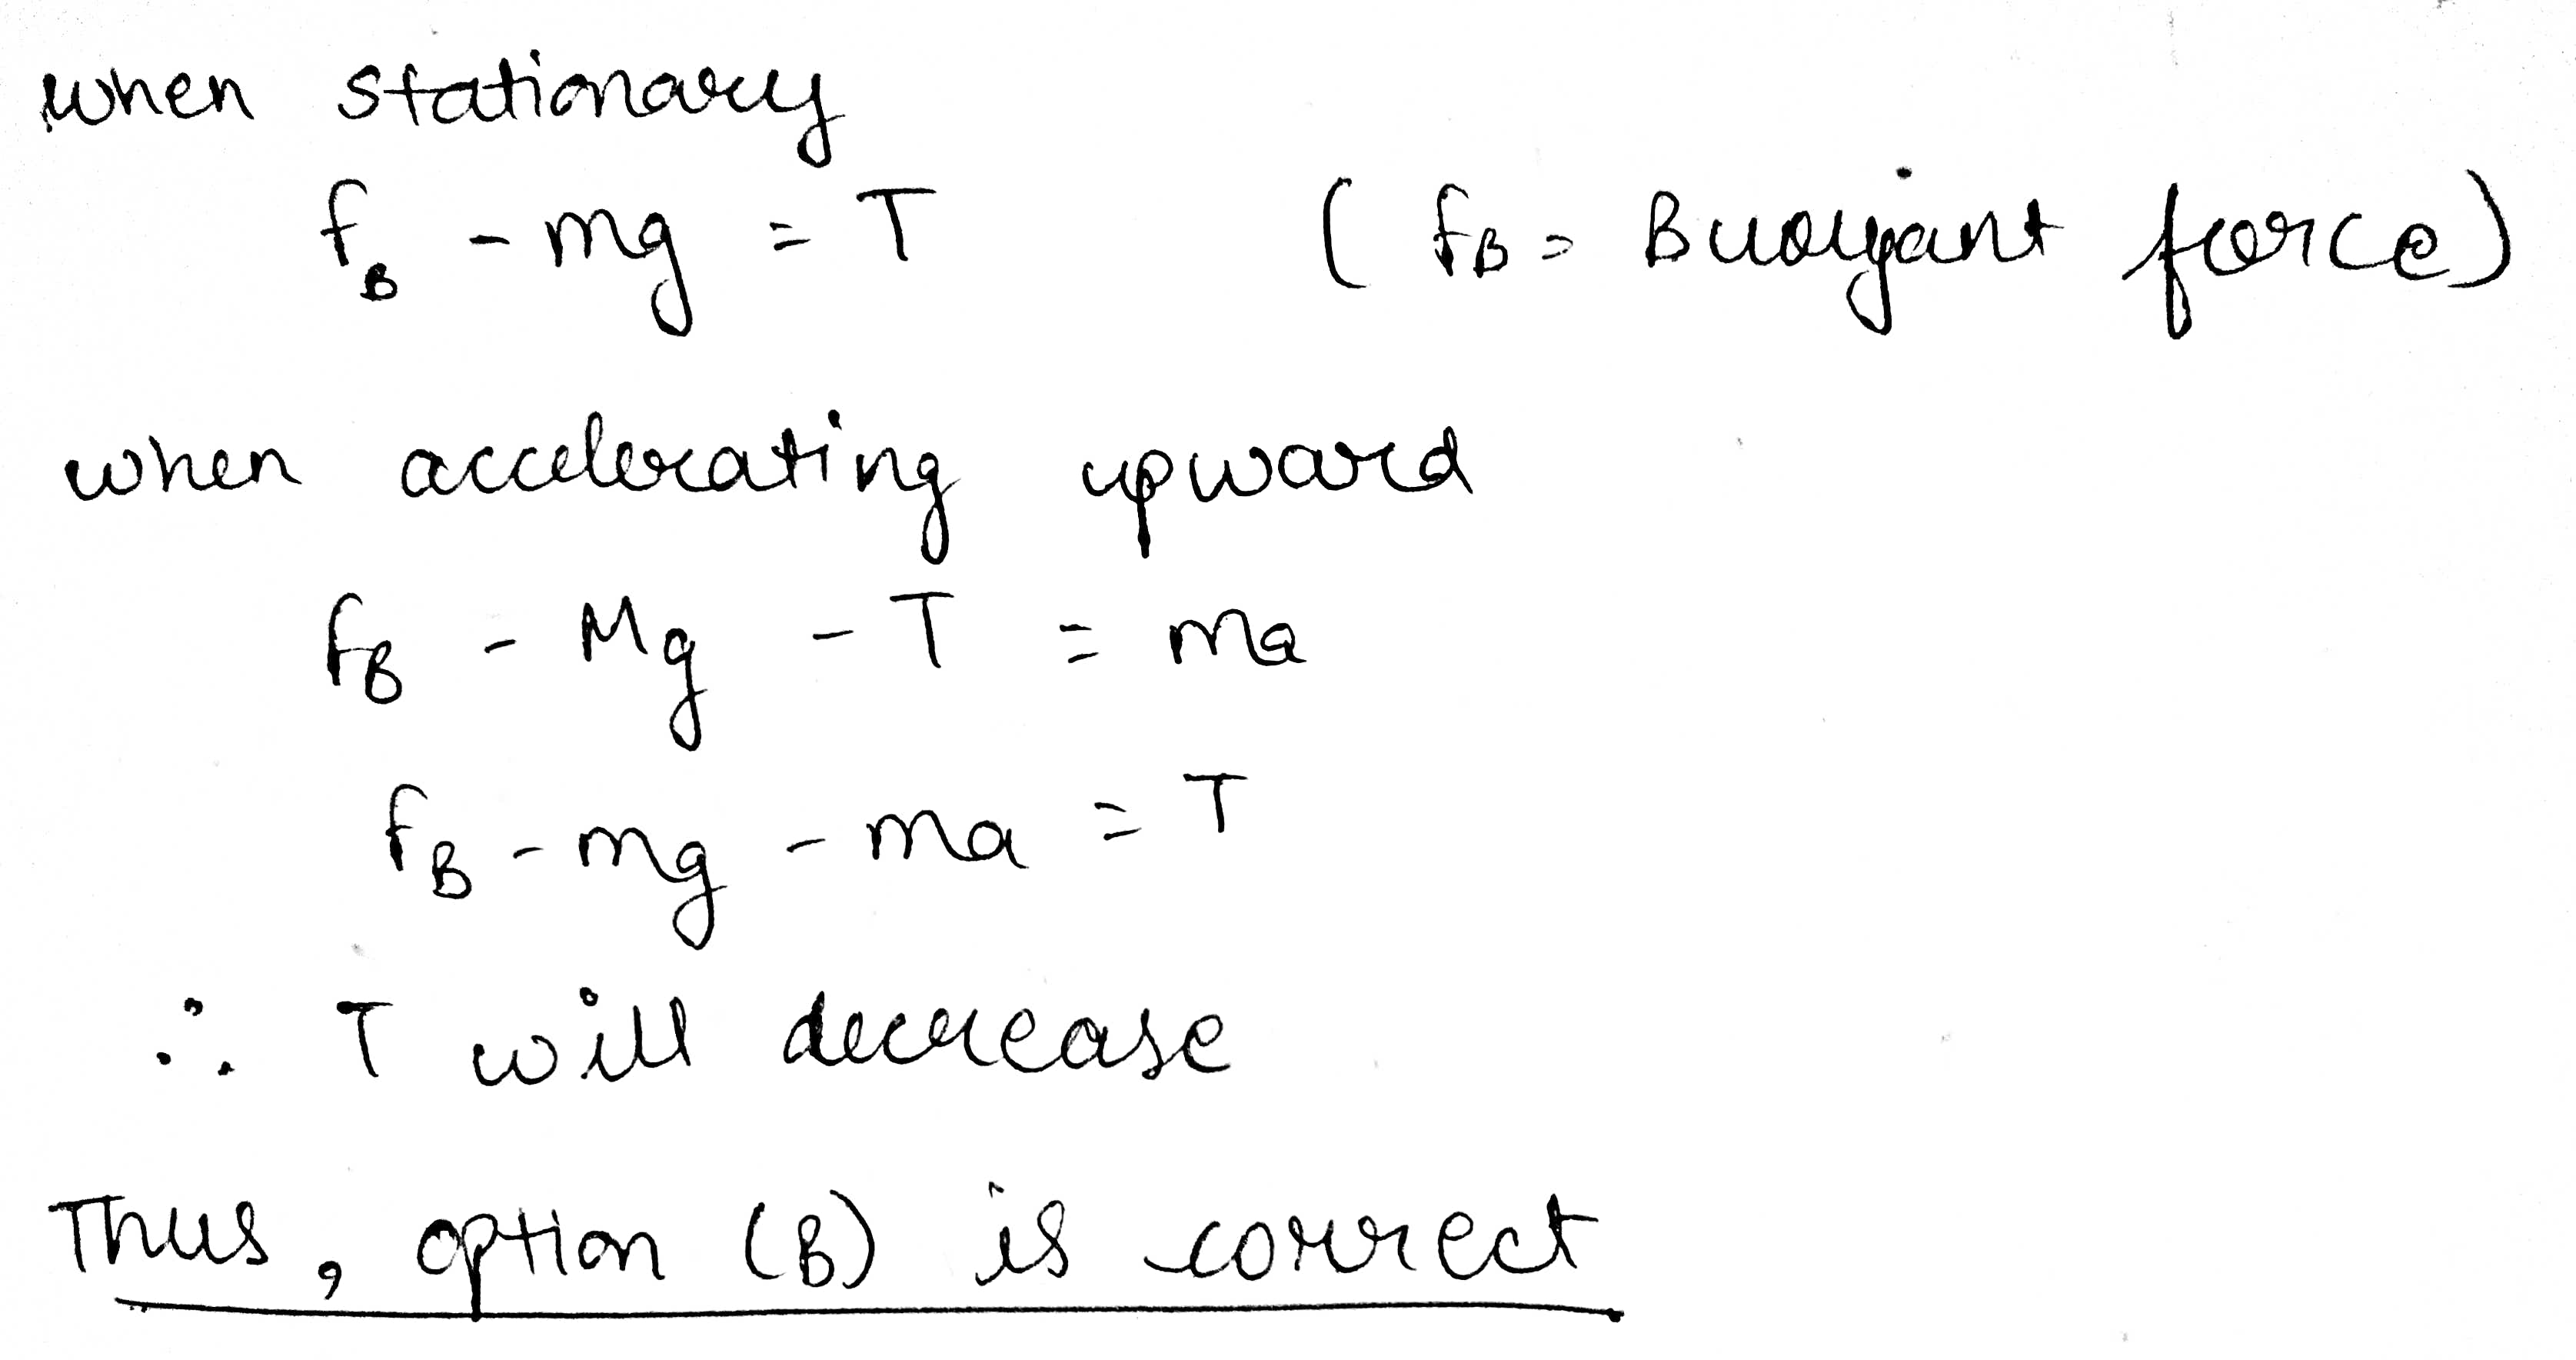 when stationary
f_B - mg = T ( f_B = Buoyant force)
when accelerating upward
f_B - Mg - T = ma
f_B - mg - ma = T
∴ T will decrease
Thus, option (B) is correct